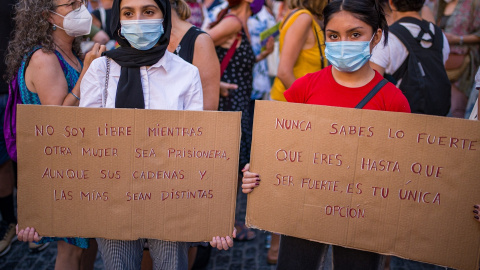 NO SOY LIBRE MIENTRAS
OTRA MUJER SEA PRISIONERA,
AUNQUE SUS CADENAS Y
LAS MÍAS SEAN DISTINTAS
NUNCA SABES LO FUERTE
QUE ERES HASTA QUE
SER FUERTE, ES TU UNICA
OPCION